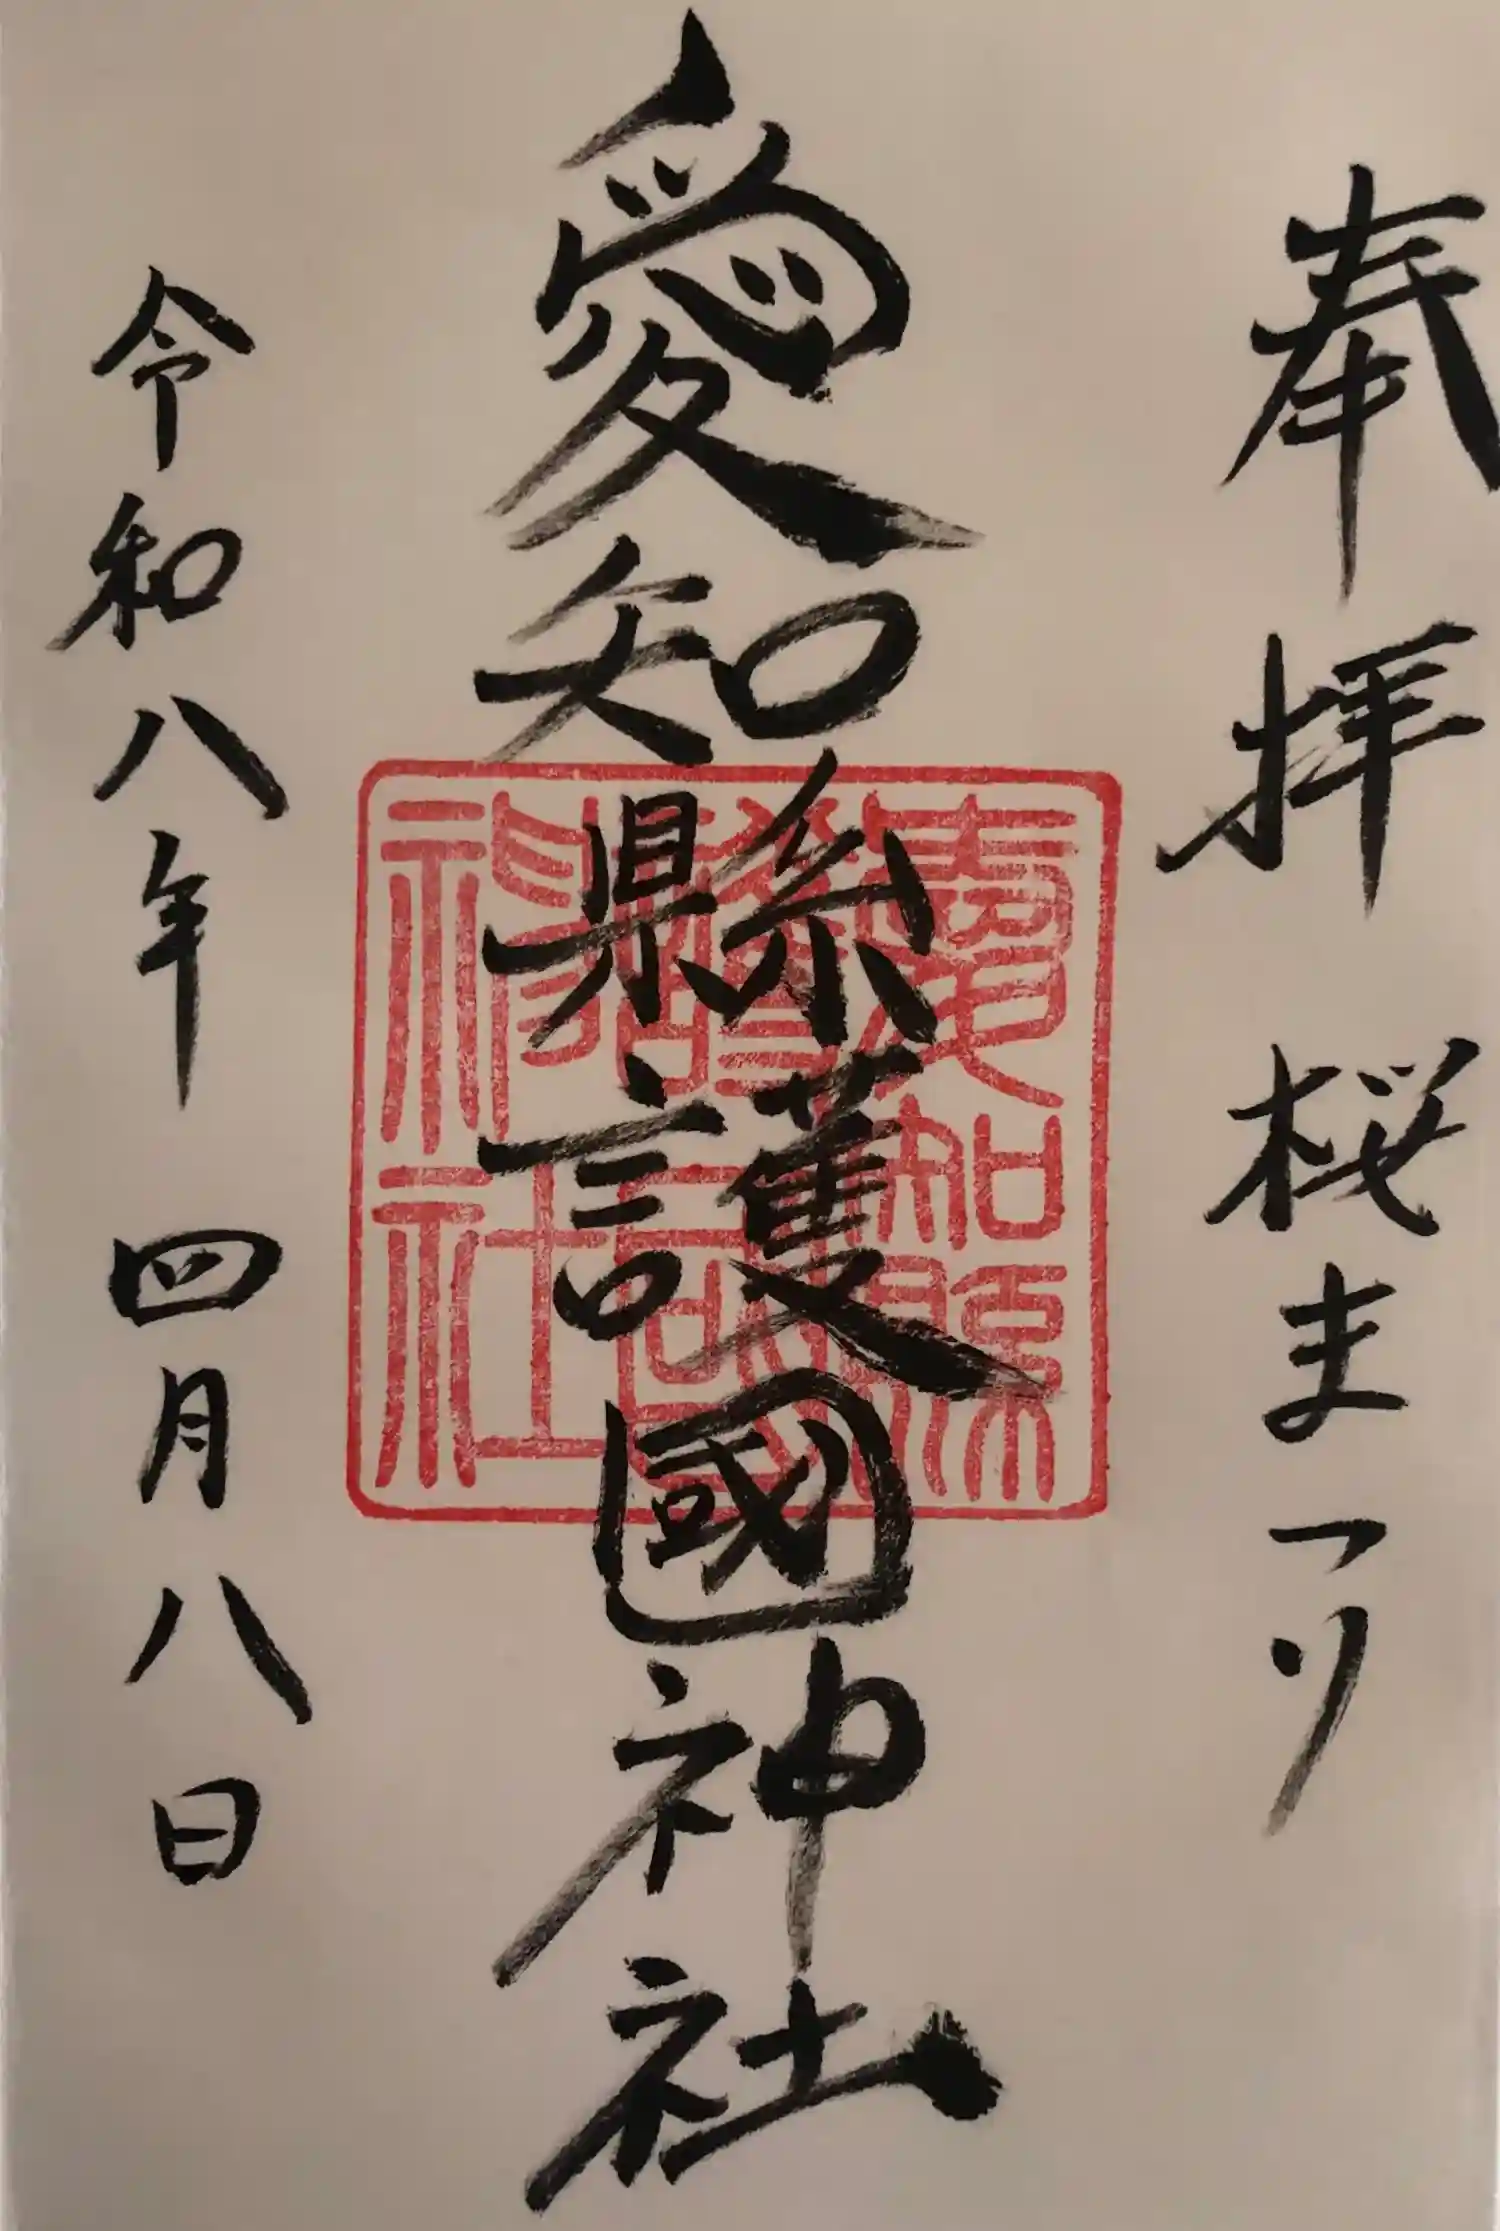 奉拝 桜まつり
愛知縣護國神社
令和八年 四月八日
愛知縣
護國
神社